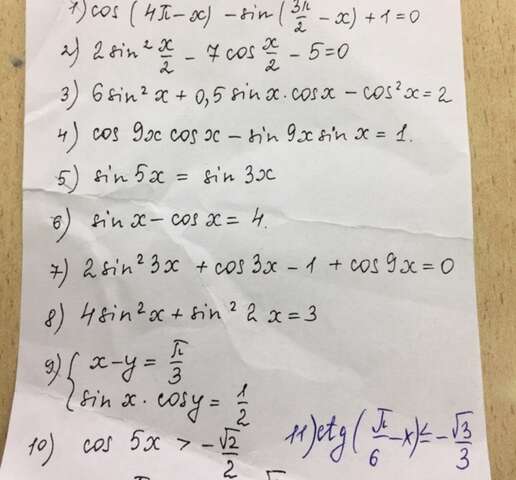 1) cos (4π-x) - sin (3π/2 - x) + 1 = 0
2) 2 sin² x/2 - 7 cos x/2 - 5 = 0
3) 6 sin² x + 0,5 sin x · cos x - cos² x = 2
4) cos 9x cos x - sin 9x sin x = 1.
5) sin 5x = sin 3x
6) sin x - cos x = 4.
7) 2 sin² 3x + cos 3x - 1 + cos 9x = 0
8) 4 sin² x + sin² 2 x = 3
9) { x - y = π/3
sin x · cos y = 1/2
10) cos 5x > - √2/2
11) ctg (π/6 - x) ≤ - √3/3